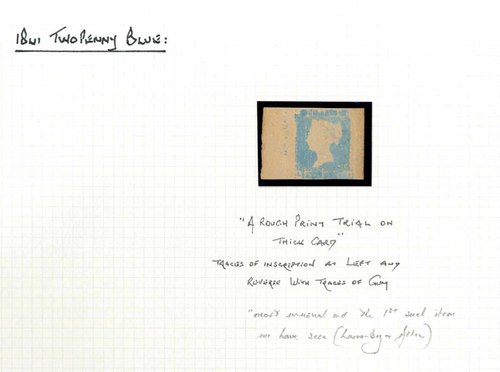 1841 TWOPENNY BLUE:
"A ROUGH PRINT TRIAL ON
THICK CARD"
TRACES OF INSCRIPTION AT LEFT AND
REVERSE WITH TRACES OF GUM
"most unusual and the 1st such item
we have seen (